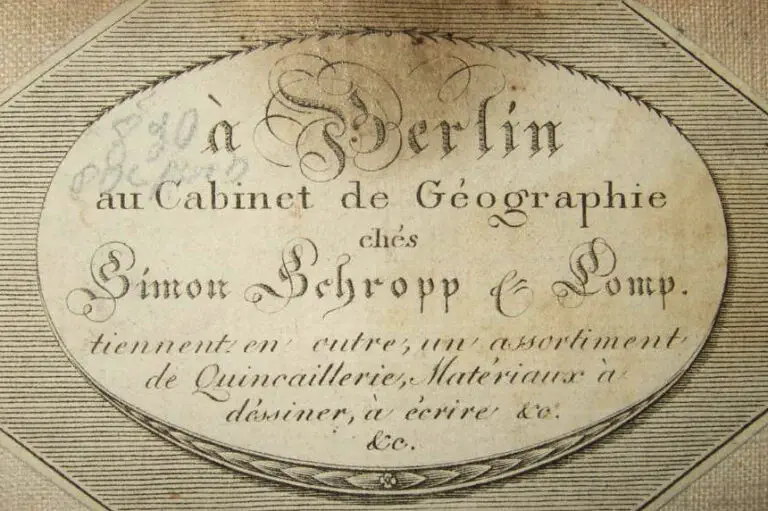 à Berlin
au Cabinet de Géographie
chés
Simon Schropp & Comp.
tiennent en outre, un assortiment
de Quincaillerie, Matériaux à
déssiner, à écrire &c.
&c.